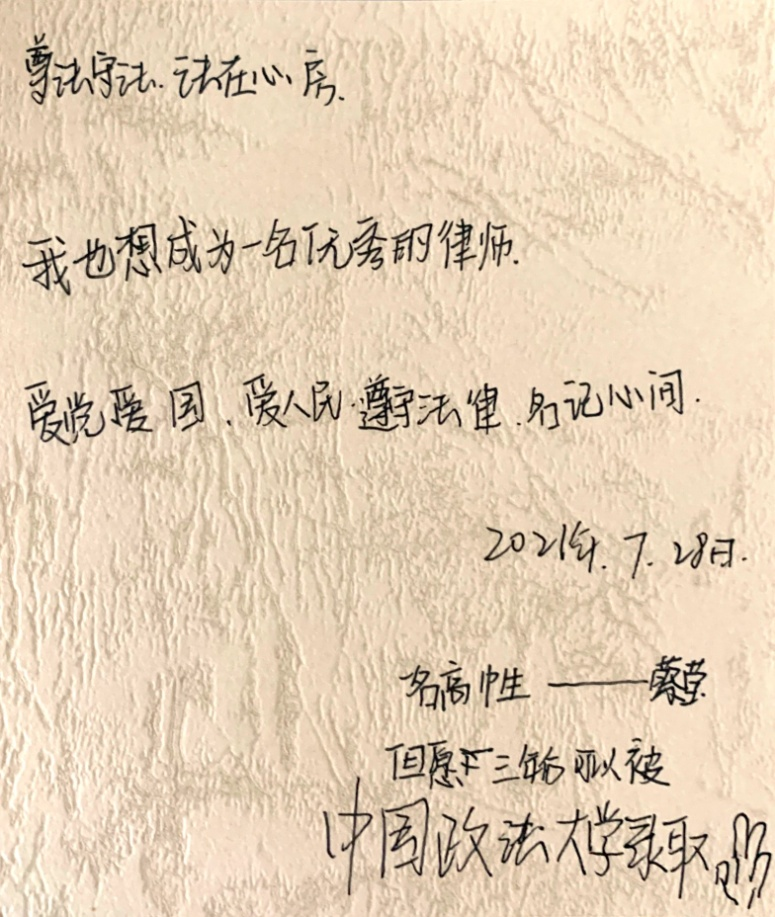 尊法守法.法在心房.
我也想成为一名优秀的律师.
爱党爱国、爱人民.遵守法律.名记心间.
2021年.7.28日.
名高中生 ——
但愿 三年后可以被
中国政法大学录取